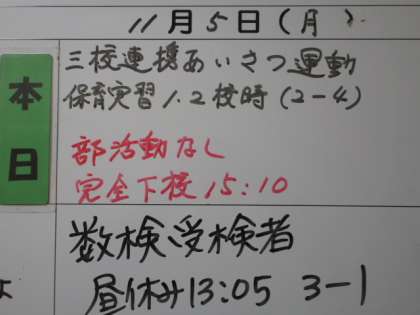 11月5日(月)
本日
三校連携あいさつ運動
保育実習1.2校時(2-4)
部活動なし
完全下校15:10
数検受検者
昼休み13:05 3-1